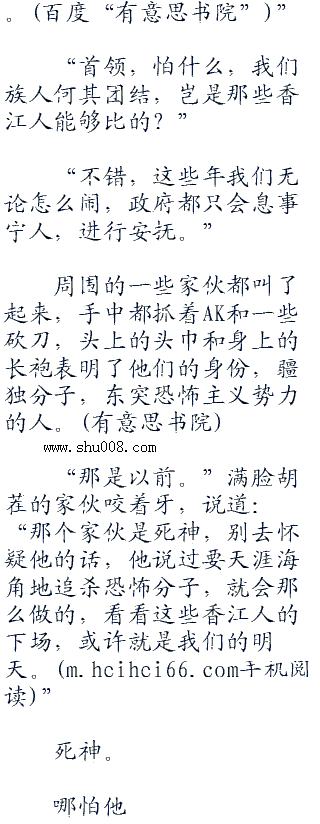 。(百度“有意思书院”)”
“首领，怕什么，我们
族人何其团结，岂是那些香
江人能够比的？”
“不错，这些年我们无
论怎么闹，政府都只会息事
宁人，进行安抚。”
周围的一些家伙都叫了
起来，手中都抓着AK和一些
砍刀，头上的头巾和身上的
长袍表明了他们的身份，疆
独分子，东突恐怖主义势力
的人。(有意思书院)
www.shu008.com
“那是以前。”满脸胡
茬的家伙咬着牙，说道：
“那个家伙是死神，别去怀
疑他的话，他说过要天涯海
角地追杀恐怖分子，就会那
么做的，看看这些香江人的
下场，或许就是我们的明
天。(m.hcihci66.com手机阅
读)”
死神。
哪怕他